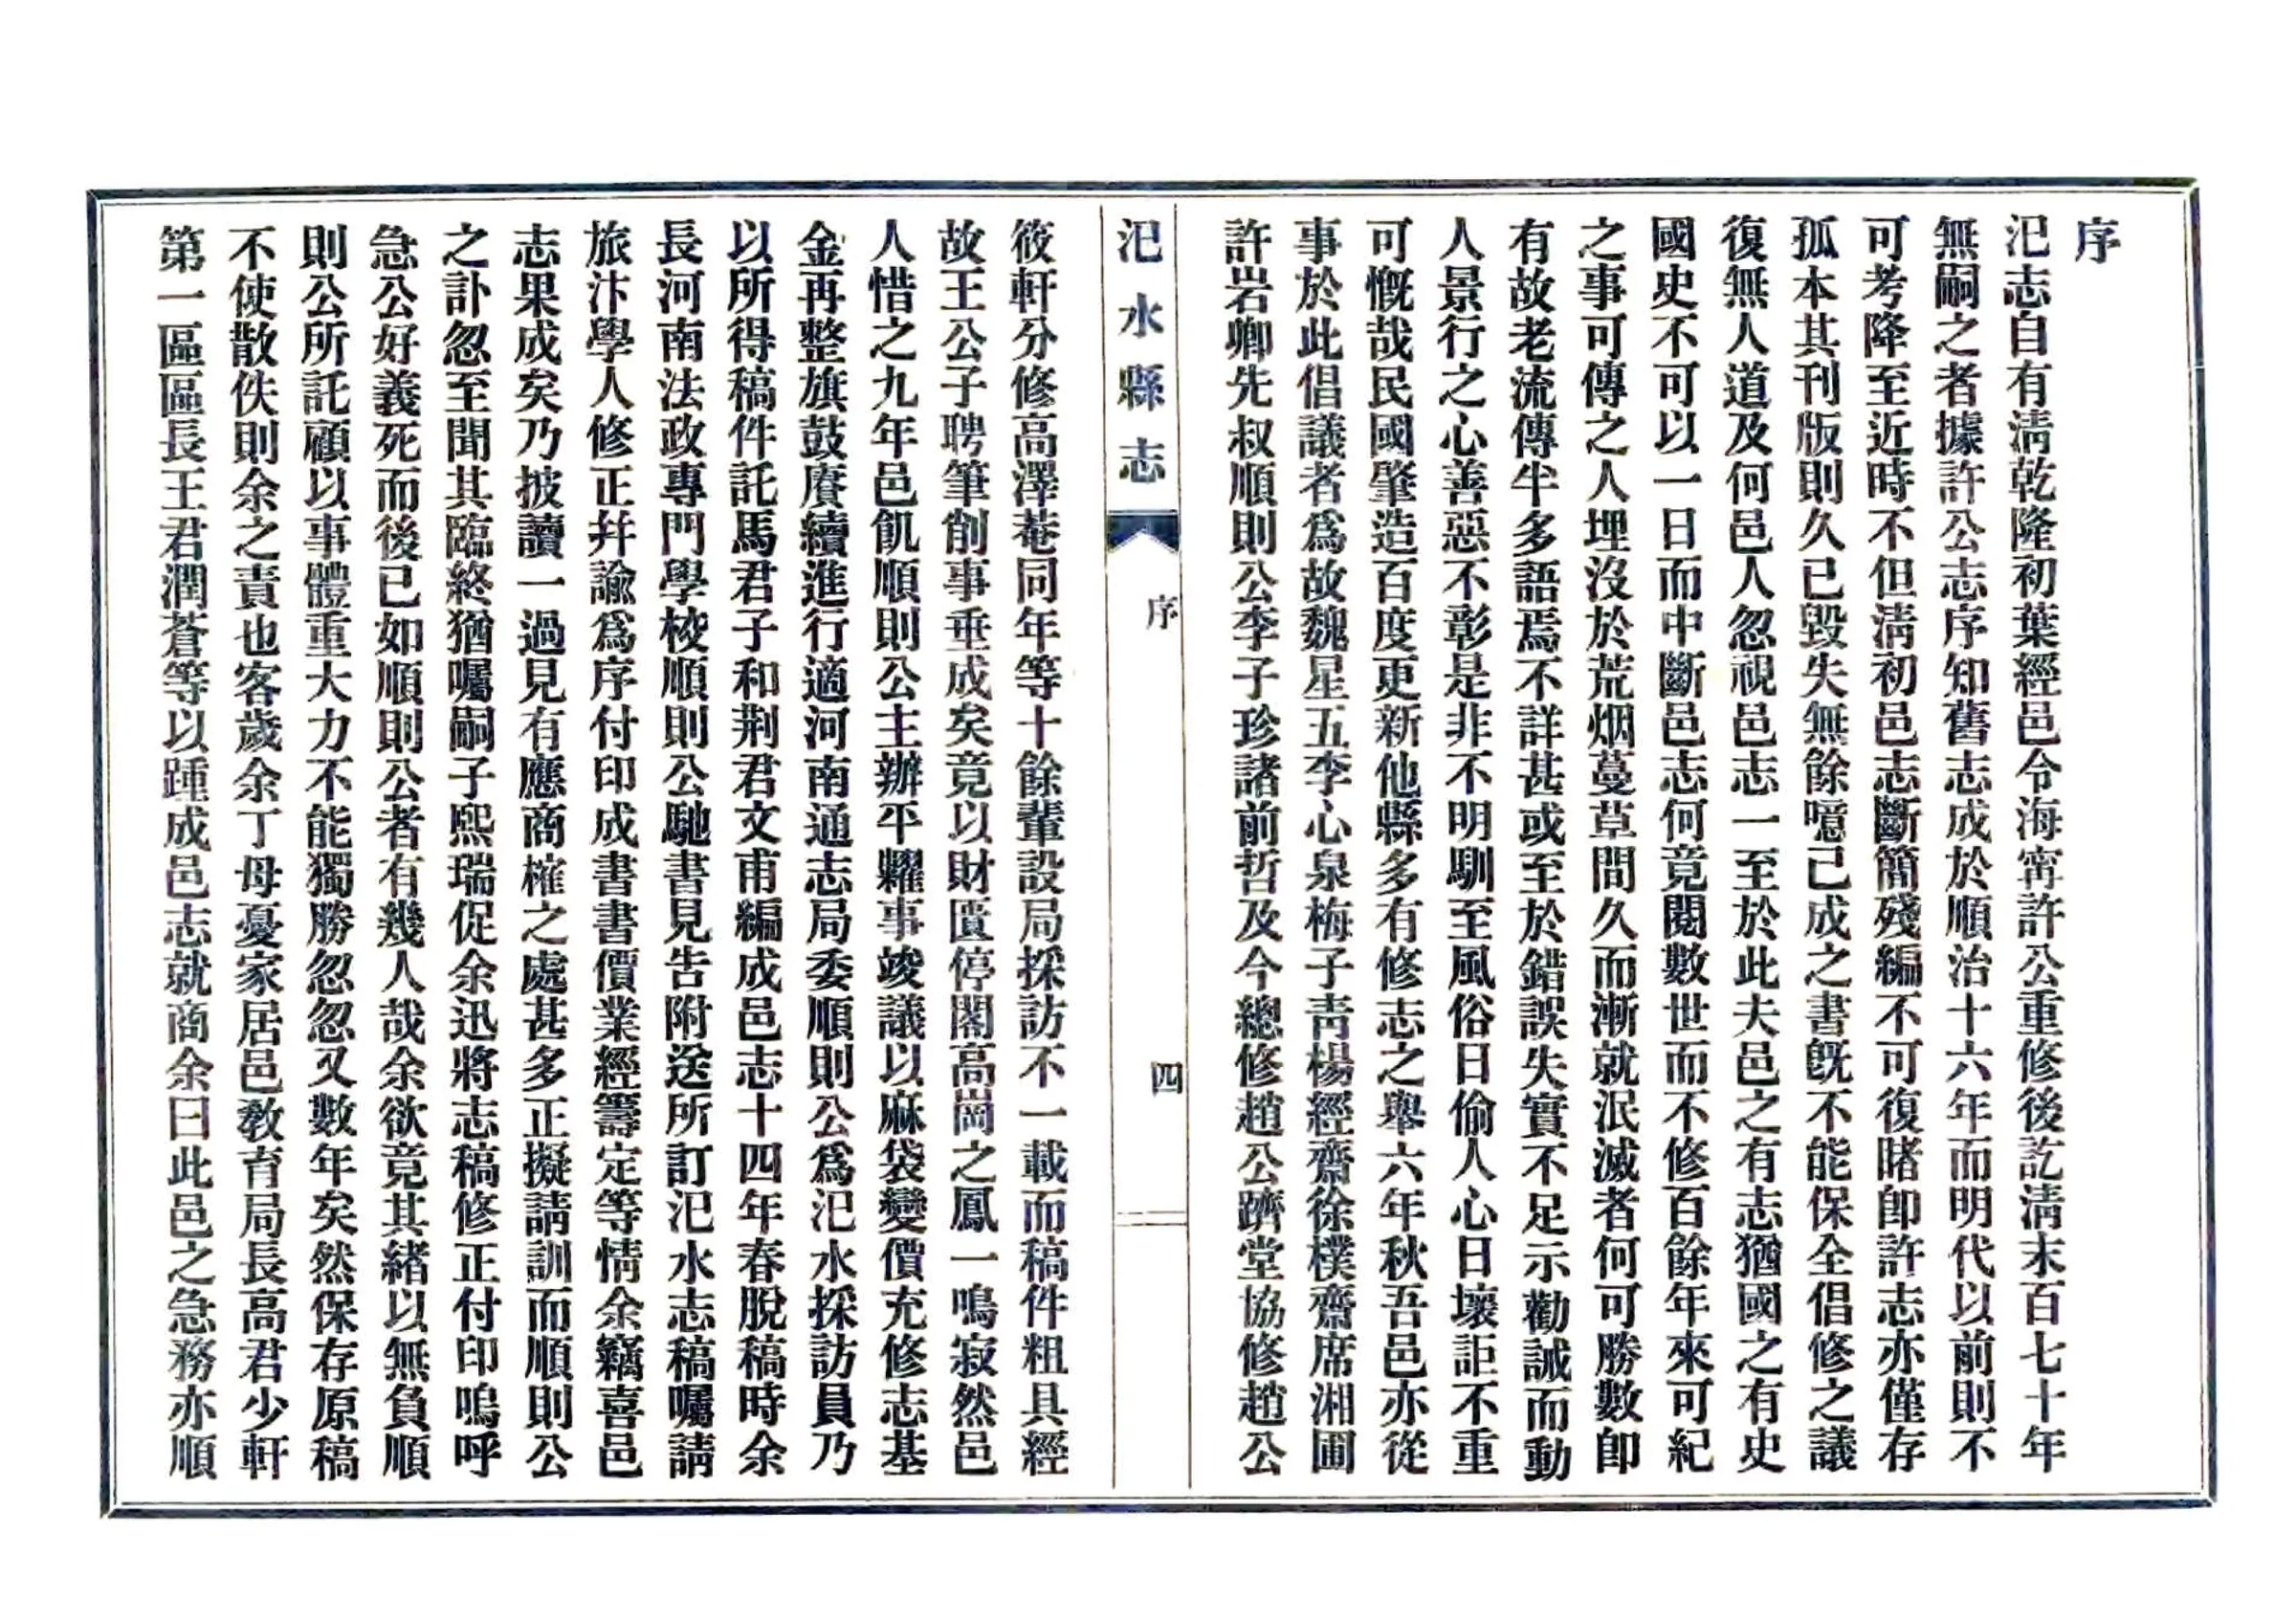 序
汜志自有淸乾隆初葉經邑令海寗許公重修後訖淸末百七十年
無嗣之者據許公志序知舊志成於順治十六年而明代以前則不
可考降至近時不但淸初邑志斷簡殘編不可復睹卽許志亦僅存
孤本其刊版則久已毀失無餘噫己成之書旣不能保全倡修之議
復無人道及何邑人忽視邑志一至於此夫邑之有志猶國之有史
國史不可以一日而中斷邑志何竟閱數世而不修百餘年來可紀
之事可傳之人埋沒於荒烟蔓草間久而漸就泯滅者何可勝數卽
有故老流傳半多語焉不詳甚或至於錯誤失實不足示勸誡而動
人景行之心善惡不彰是非不明馴至風俗日偷人心日壞詎不重
可慨哉民國肇造百度更新他縣多有修志之舉六年秋吾邑亦從
事於此倡議者爲故魏星五李心泉梅子靑楊經齋徐樸齋席湘圃
許岩卿先叔順則公李子珍諸前哲及今總修趙公躋堂協修趙公
汜水縣志
序
四
筱軒分修高澤菴同年等十餘輩設局採訪不一載而稿件粗具經
故王公子聘筆削事垂成矣竟以財匱停閣高崗之鳳一鳴寂然邑
人惜之九年邑飢順則公主辦平糶事竣議以麻袋變價充修志基
金再整旗鼓賡續進行適河南通志局委順則公爲汜水採訪員乃
以所得稿件託馬君子和荆君文甫編成邑志十四年春脫稿時余
長河南法政專門學校順則公馳書見告附送所訂汜水志稿囑請
旅汴學人修正幷諭爲序付印成書書價業經籌定等情余竊喜邑
志果成矣乃披讀一過見有應商榷之處甚多正擬請訓而順則公
之訃忽至聞其臨終猶囑嗣子熙瑞促余迅將志稿修正付印嗚呼
急公好義死而後已如順則公者有幾人哉余欲竟其緒以無負順
則公所託顧以事體重大力不能獨勝忽忽又數年矣然保存原稿
不使散佚則余之責也客歲余丁母憂家居邑敎育局長高君少軒
第一區區長王君潤蒼等以踵成邑志就商余曰此邑之急務亦順